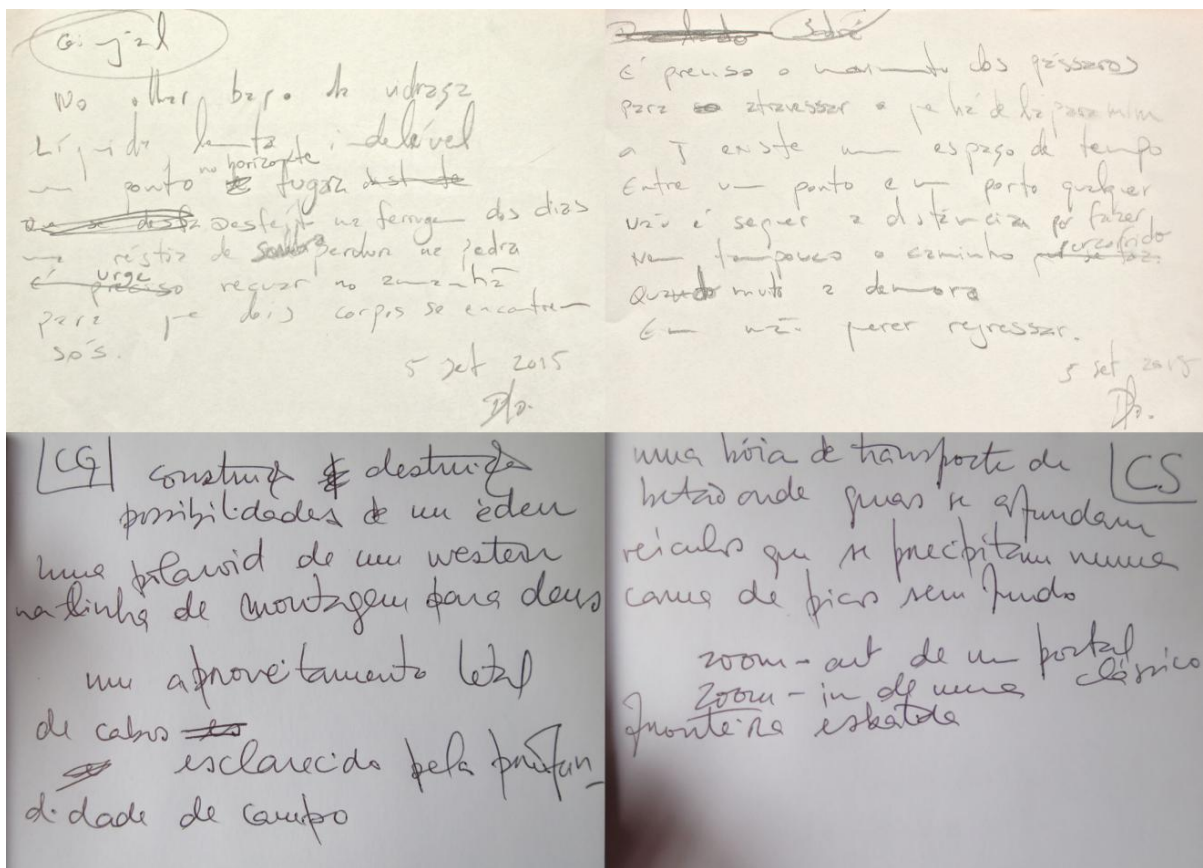 No olhar baço da vidraça
Líquida lenta indelével
um ponto no horizonte fugaz
Desfeito na ferrugem dos dias
uma réstia de sombra perdura na pedra
urge recuar no amanhã
para que dois corpos se encontrem
sós.
5 set 2015
É preciso o movimento dos pássaros
para atravessar o que há de lá para mim
existe um espaço de tempo
Entre um ponto e um porto qualquer
não é sequer a distância por fazer
Nem tampouco o caminho percorrido
Quando muito a demora
Em não querer regressar.
5 set 2015
CG
construção destruição
possibilidades de um éden
uma polaroid de um western
na linha de montagem para deus
um aproveitamento letal
de cabos
esclarecido pela profun-
didade de campo
CS
uma bóia de transporte de
betão onde gruas se afundam
veículos que se precipitam numa
cama de picos sem fundo
zoom-out de um portal
clássico
zoom-in de uma
fronteira esbatida